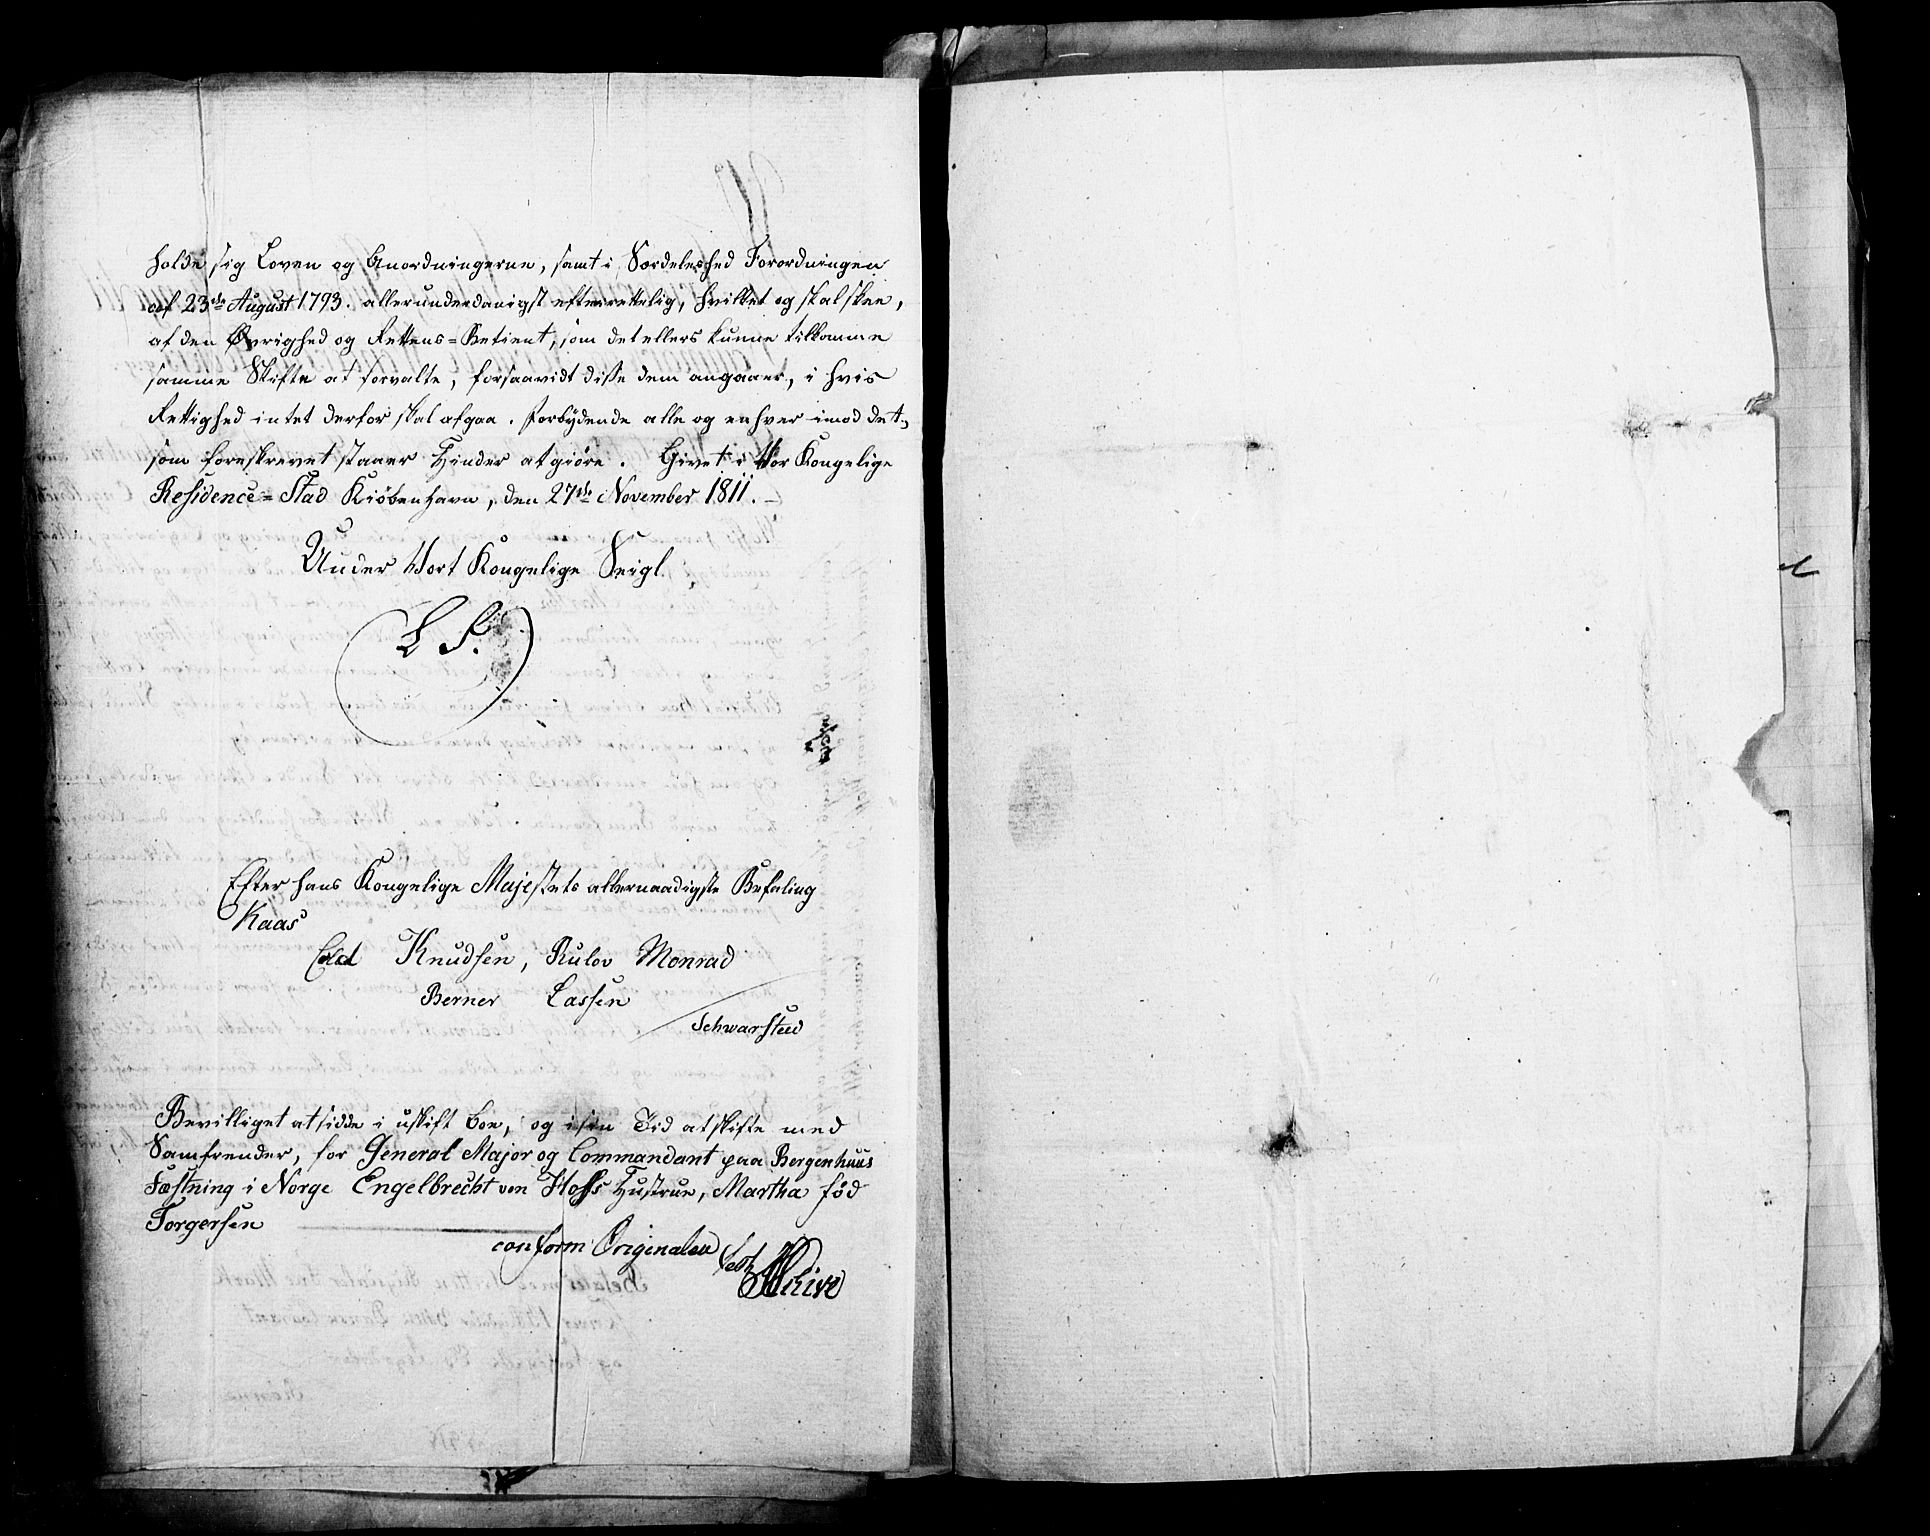 holde sig Loven og Anordningerne, samt i Særdeleshed Forordningen
af 23de August 1793. allerunderdanigst efterrettelig, hvilket og skal skee,
af den Øvrighed og Rettens-Betient, som det ellers kunne tilkomme
samme Skifte at forvalte, forsaavidt disse dem angaaer, i hvis
Rettighed intet derfor skal afgaa. Forbydende alle og enhver imod det,
som foreskrevet staaer Hinder at giøre. Givet i Vor Kongelige
Residence-Stad Kiøbenhavn, den 27de November 1811.
Under Vort Kongelige Seigl.
L S.
Efter hans Kongelige Majestets allernaadigste Befaling
Kaas
Cold Knudsen, Bulov Monrad
Berner Lassen
Schwarsteed
Bevillget at sidde i uskift Boe, og i sin Tid at skifte med
Samfrender, for General Major og Commandant paa Bergenhuus
Fæstning i Norge Engelbrecht von Hoffs Hustrue, Martha fød
Torgersen
conform Originalen test